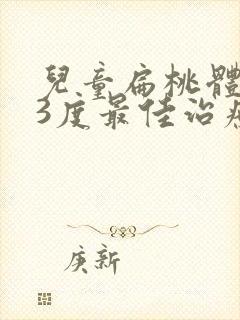 兒童扁桃體
3度最佳治疗
庚新